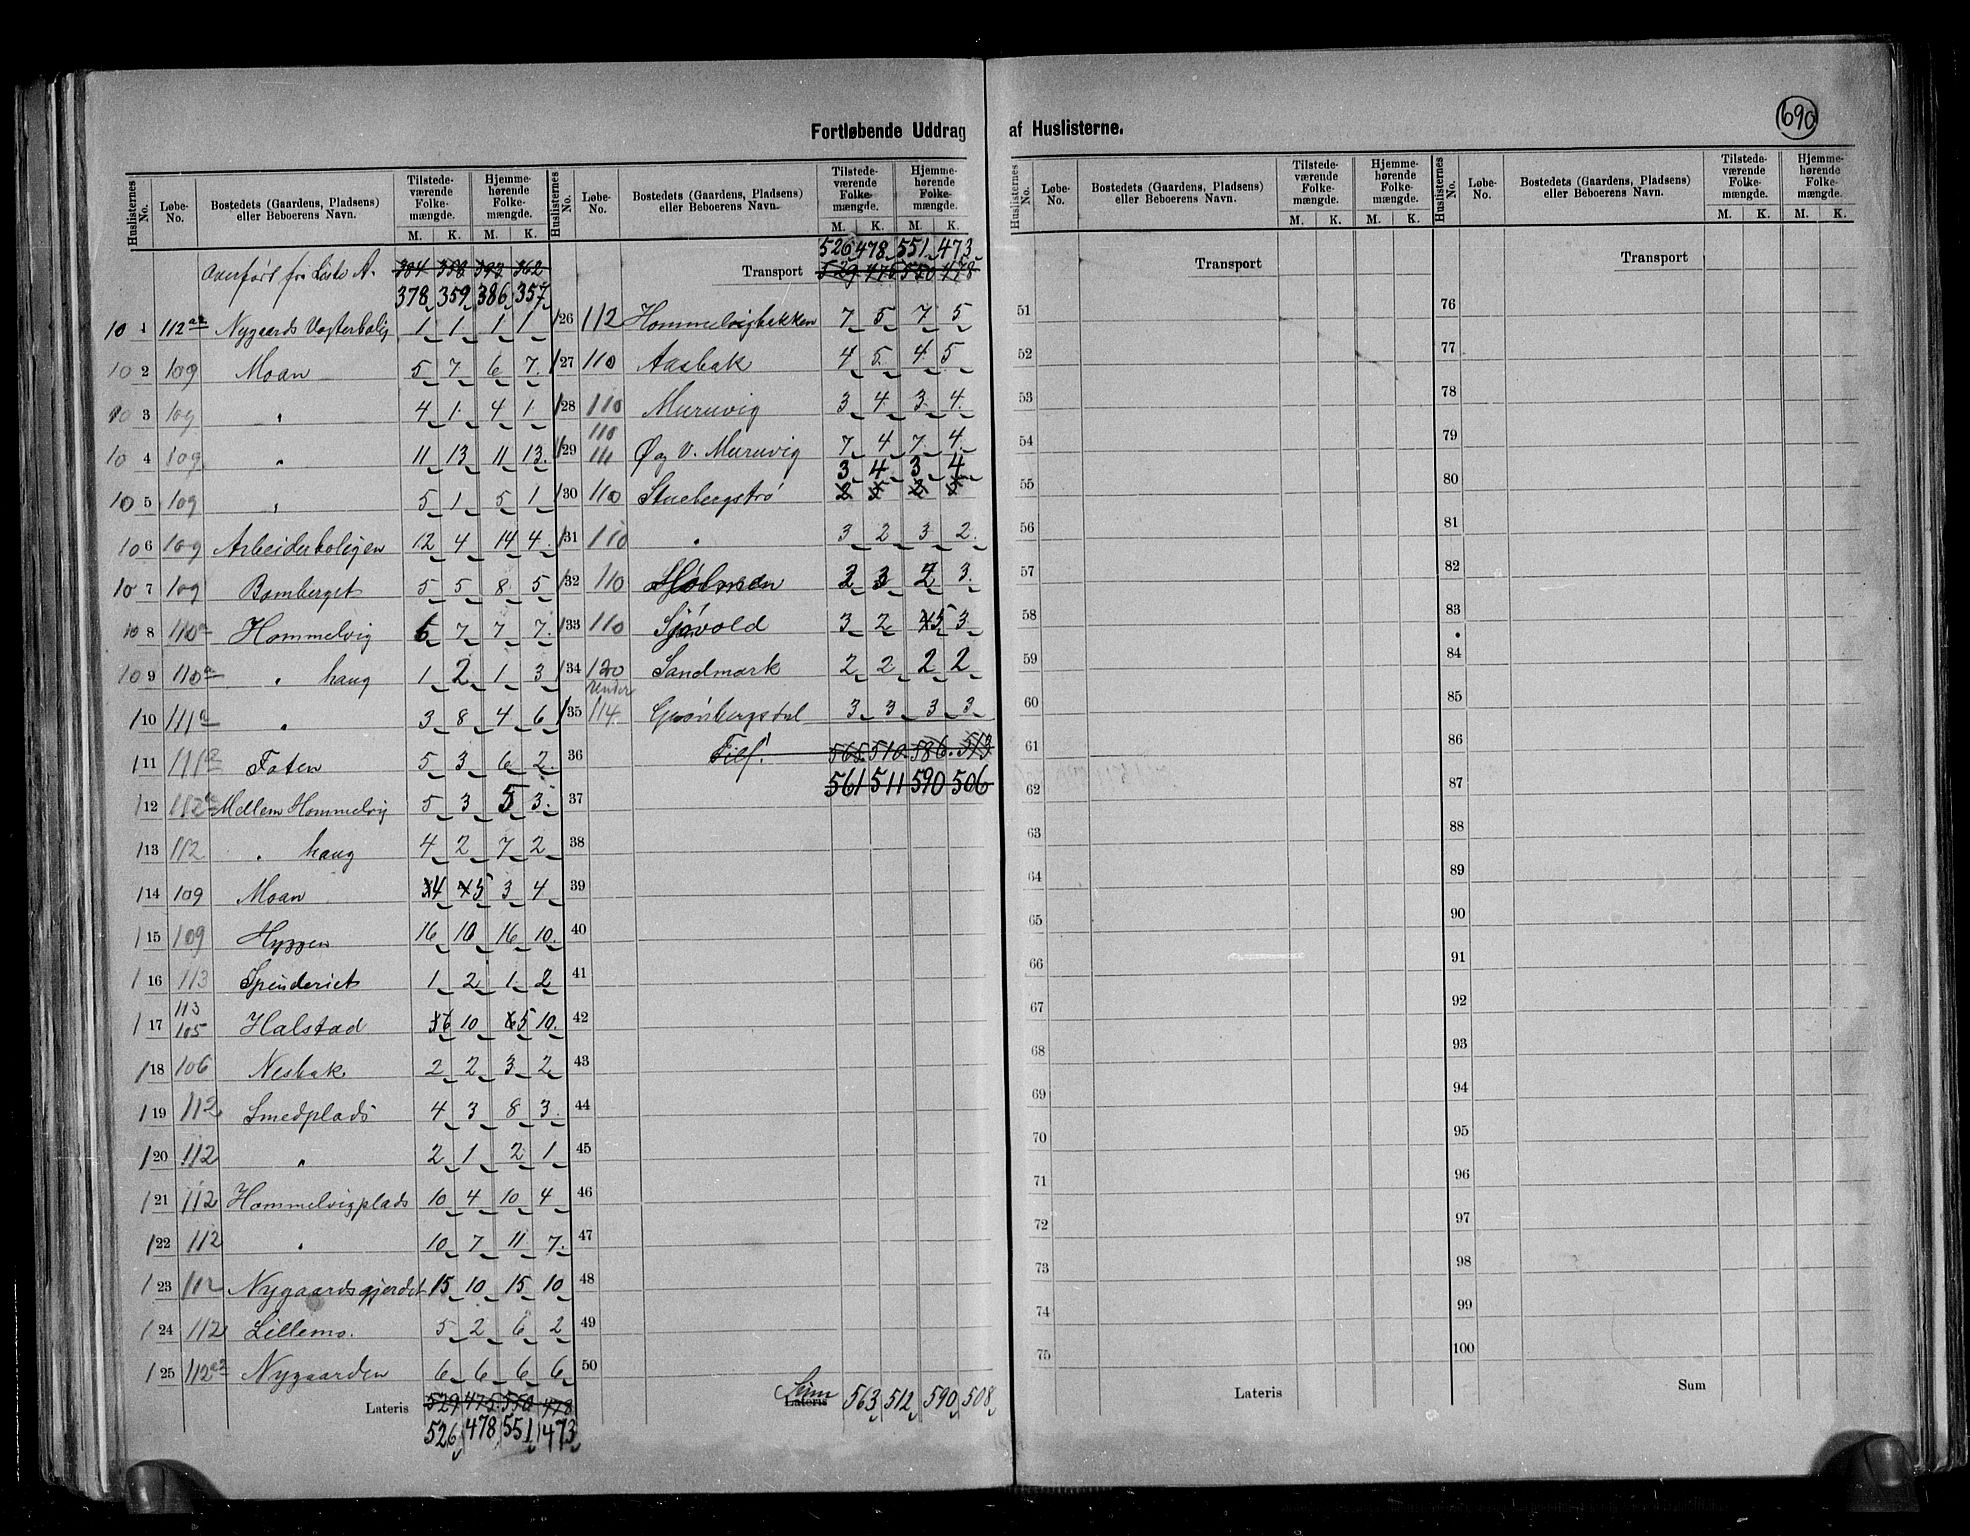 690
Fortløbende Uddrag af Huslisterne.
Huslisternes No. Løbe-No. Bostedets (Gaardens, Pladsens) eller Beboerens Navn. Tilstedeværende Folkemængde. M. K. Hjemmehørende Folkemængde. M. K.
Overført fra Liste A. 384 358 393 362
378 359 386 357
10 1 112 Nygaards Vogterbolig 1 1 1 1
10 2 109 Moan 5 7 6 7
10 3 109 " 4 1 4 1
10 4 109 " 11 13 11 13
10 5 109 " 5 1 5 1
10 6 109 Arbeiderboligen 12 4 14 4
10 7 109 Bomberget 5 5 8 5
10 8 110a Hommelvig 6 7 7 7
10 9 110a " haug 1 2 1 3
1 10 111a " 3 8 4 6
1 11 111a Foten 5 3 6 2
1 12 112 Mellem Hommelvig 5 3 5 3
1 13 112 " haug 4 2 7 2
1 14 109 Moan 4 5 3 4
1 15 109 Hyggen 16 10 16 10
1 16 113 Spinderiet 1 2 1 2
1 17 113 105 Halstad 6 10 5 10
1 18 106 Nesbak 2 2 3 2
1 19 112 Smedplads 4 3 8 3
1 20 112 " 2 1 2 1
1 21 112 Hommelvigplads 10 4 10 4
1 22 112 " 10 7 11 7
1 23 112 Nygaardsgjerdet 15 10 15 10
1 24 112 Lillemo. 5 2 6 2
1 25 112 Nygaarden 6 6 6 6
Lateris 529 475 550 478
526 478 551 473
Huslisternes No. Løbe-No. Bostedets (Gaardens, Pladsens) eller Beboerens Navn. Tilstedeværende Folkemængde. M. K. Hjemmehørende Folkemængde. M. K.
526 478 551 473
Transport 529 475 550 478
1 26 112 Hommelvigbakken 7 5 7 5
1 27 110 Aasbak 4 5 4 5
1 28 110 Muruvig 3 4 3 4
1 29 110 111 Ø og V. Muruvig 7 4 7 4
3 4 3 4
1 30 110 Stuebergstrø
1 31 110 " 3 2 3 2
1 32 110 Holmen 2 3 2 3
1 33 110 Sjøvold 3 2 5 3
1 34 120 Sandmark 2 2 2 2
under
1 35 114. Grønbergsdal 3 3 3 3
36 565 510 586 513
37 561 511 590 506
38
39
40
41
42
43
44
45
46
47
48
49
50
Sum
Lateris 563 512 590 508
Huslisternes No. Løbe-No. Bostedets (Gaardens, Pladsens) eller Beboerens Navn. Tilstedeværende Folkemængde. M. K. Hjemmehørende Folkemængde. M. K.
Transport
51
52
53
54
55
56
57
58
59
60
61
62
63
64
65
66
67
68
69
70
71
72
73
74
75
Lateris
Huslisternes No. Løbe-No. Bostedets (Gaardens, Pladsens) eller Beboerens Navn. Tilstedeværende Folkemængde. M. K. Hjemmehørende Folkemængde. M. K.
Transport
76
77
78
79
80
81
82
83
84
85
86
87
88
89
90
91
92
93
94
95
96
97
98
99
100
Sum